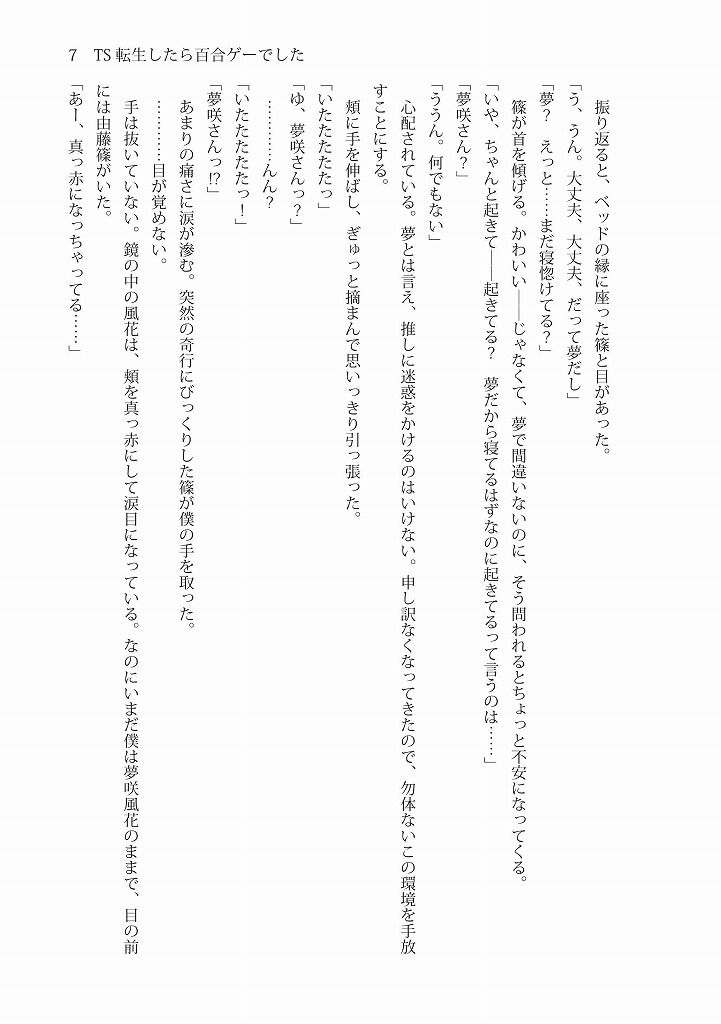 7　TS転生したら百合ゲーでした
　振り返ると、ベッドの縁に座った篠と目があった。
「う、うん。大丈夫、大丈夫、だって夢だし」
「夢？　えっと……まだ寝惚けてる？」
　篠が首を傾げる。かわいい――じゃなくて、夢で間違いないのに、そう問われるとちょっと不安になってくる。
「いや、ちゃんと起きて――起きてる？　夢だから寝てるはずなのに起きてるって言うのは……」
「夢咲さん？」
「ううん。何でもない」
　心配されている。夢とは言え、推しに迷惑をかけるのはいけない。申し訳なくなってきたので、勿体ないこの環境を手放
すことにする。
　頬に手を伸ばし、ぎゅっと摘まんで思いっきり引っ張った。
「いたたたたたっ」
「ゆ、夢咲さんっ？」
　…………んん？
「いたたたたたっ！」
「夢咲さんっ!?」
　あまりの痛さに涙が滲む。突然の奇行にびっくりした篠が僕の手を取った。
　…………目が覚めない。
　手は抜いていない。鏡の中の風花は、頬を真っ赤にして涙目になっている。なのにいまだ僕は夢咲風花のままで、目の前
には由藤篠がいた。
「あー、真っ赤になっちゃってる……」